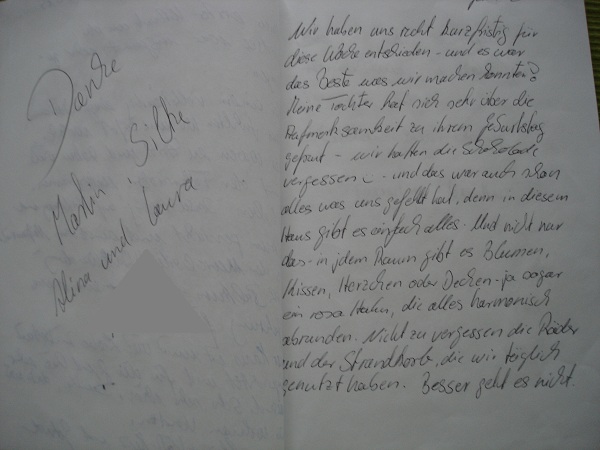 Danke
Martin, Silke
Alina und Laura
Wir haben uns recht kurzfristig für
diese Woche entschieden - und es war
das Beste was wir machen konnten!
Meine Tochter hat sich sehr über die
Aufmerksamkeit zu ihrem Geburtstag
gefreut - wir hatten die Schokolade
vergessen - und das war auch schon
alles was uns gefehlt hat, denn in diesem
Haus gibt es einfach alles. Und nicht nur
das - in jedem Raum gibt es Blumen,
Kissen, Herzchen oder Decken - ja sogar
ein rosa Hahn, die alles harmonisch
abrunden. Nicht zu vergessen die Räder
und der Strandkorb, die wir täglich
genutzt haben. Besser geht es nicht.